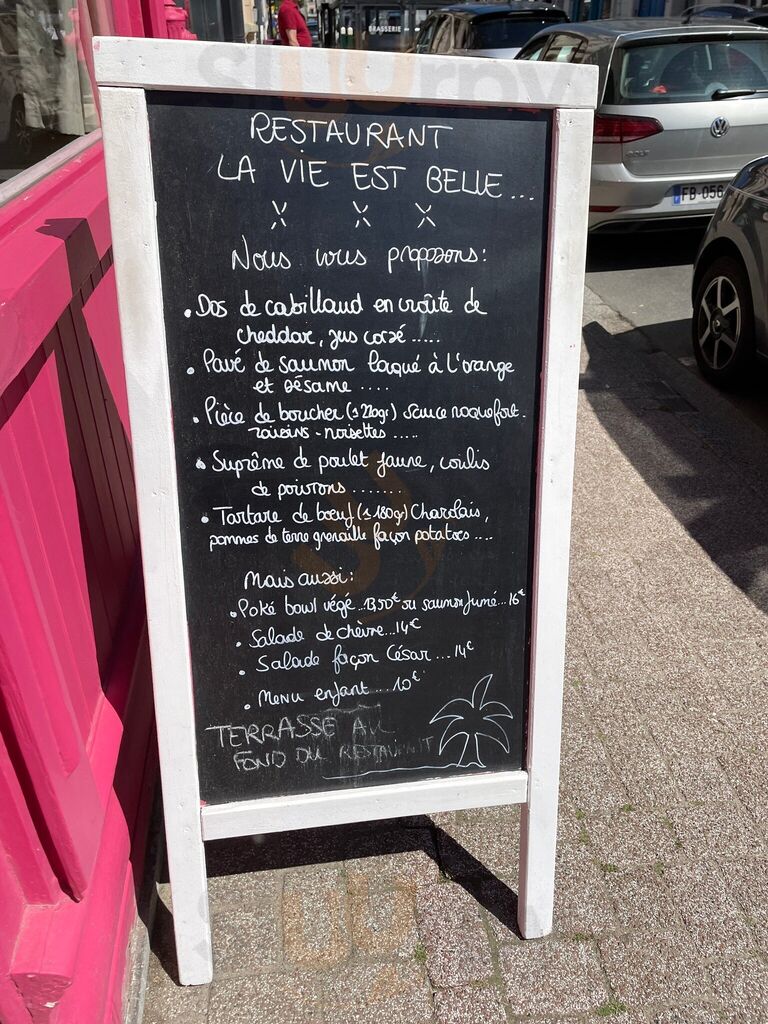 BRASSERIE
RESTAURANT
LA VIE EST BELLE...
Nous vous proposons:
. Dos de cabillaud en croûte de
cheddar, jus corsé .....
. Pavé de saumon laqué à l'orange
et sésame ....
. Pièce de boucher (± 220gr) sauce roquefort-
raisins - noisettes .....
. Suprême de poulet jaune, coulis
de poivrons .......
. Tartare de bœuf (± 180gr) Charolais,
pommes de terre grenaille façon potatoes ....
Mais aussi:
. Poké bowl végé...13,50€ ou saumon fumé...16€
. Salade de chèvre...14€
. Salade façon César ...14€
. Menu enfant...10€
TERRASSE AU
FOND DU RESTAURANT
FB-056